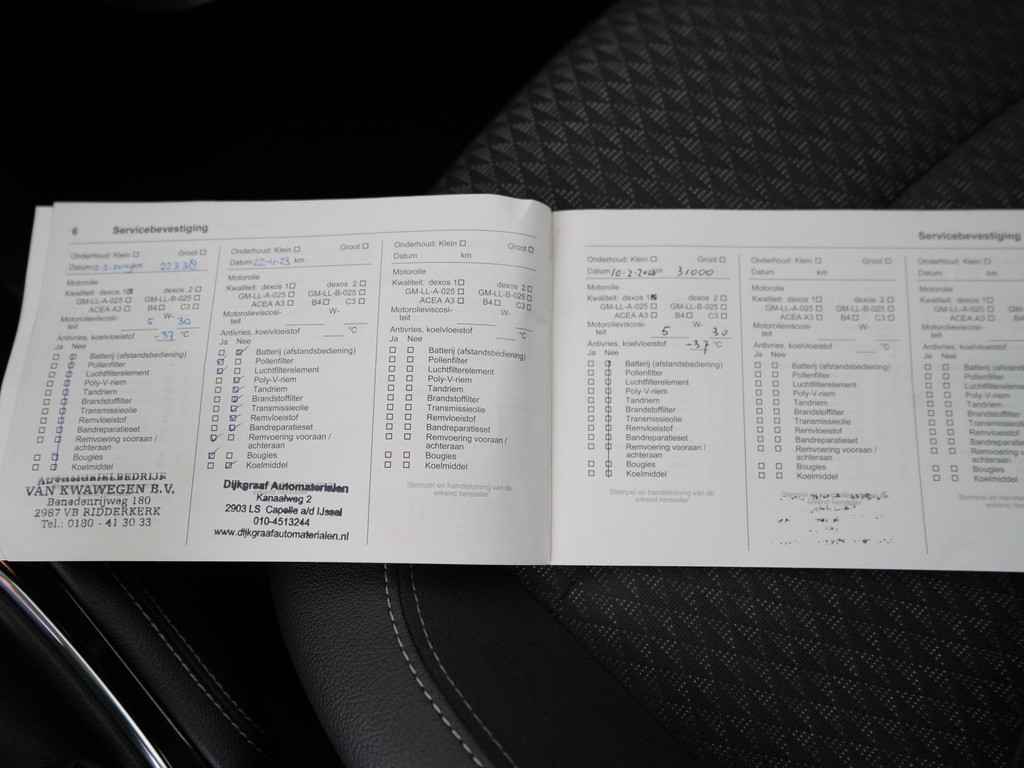 6 Servicebevestiging
Onderhoud: Klein Groot
Datum 22338
Motorolie
Kwaliteit: dexos 1 dexos 2
GM-LL-A-025 GM-LL-B-025
ACEA A3 B4 C3
Motorolieviscosi- W-
teit 5 30
Antivries, koelvloeistof -37 °C
Ja Nee
Batterij (afstandsbediening)
Pollenfilter
Luchtfilterelement
Poly-V-riem
Tandriem
Brandstoffilter
Transmissieolie
Remvloeistof
Bandreparatieset
Remvoering vooraan /
achteraan
Bougies
Koelmiddel
Automobielbedrijf
VAN KWAWEGEN B.V.
Benedenrijweg 180
2987 VB RIDDERKERK
Tel.: 0180 - 41 30 33
Onderhoud: Klein Groot
Datum 22-11-23 km
Motorolie
Kwaliteit: dexos 1 dexos 2
GM-LL-A-025 GM-LL-B-025
ACEA A3 B4 C3
Motorolieviscosi- W-
teit
Antivries, koelvloeistof °C
Ja Nee
Batterij (afstandsbediening)
Pollenfilter
Luchtfilterelement
Poly-V-riem
Tandriem
Brandstoffilter
Transmissieolie
Remvloeistof
Bandreparatieset
Remvoering vooraan /
achteraan
Bougies
Koelmiddel
Dijkgraaf Automaterialen
Kanaalweg 2
2903 LS Capelle a/d IJssel
010-4513244
www.dijkgraafautomaterialen.nl
Onderhoud: Klein Groot
Datum km
Motorolie
Kwaliteit: dexos 1 dexos 2
GM-LL-A-025 GM-LL-B-025
ACEA A3 B4 C3
Motorolieviscosi- W-
teit
Antivries, koelvloeistof °C
Ja Nee
Batterij (afstandsbediening)
Pollenfilter
Luchtfilterelement
Poly-V-riem
Tandriem
Brandstoffilter
Transmissieolie
Remvloeistof
Bandreparatieset
Remvoering vooraan /
achteraan
Bougies
Koelmiddel
Stempel en handtekening van de
erkend hersteller
Servicebevestiging
Onderhoud: Klein Groot
Datum 10-2- 31000
Motorolie
Kwaliteit: dexos 1 dexos 2
GM-LL-A-025 GM-LL-B-025
ACEA A3 B4 C3
Motorolieviscosi- W-
teit 5 30
Antivries, koelvloeistof -37 °C
Ja Nee
Batterij (afstandsbediening)
Pollenfilter
Luchtfilterelement
Poly-V-riem
Tandriem
Brandstoffilter
Transmissieolie
Remvloeistof
Bandreparatieset
Remvoering vooraan /
achteraan
Bougies
Koelmiddel
Stempel en handtekening van de
erkend hersteller
Onderhoud: Klein Groot
Datum km
Motorolie
Kwaliteit: dexos 1 dexos 2
GM-LL-A-025 GM-LL-B-025
ACEA A3 B4 C3
Motorolieviscosi- W-
teit
Antivries, koelvloeistof °C
Ja Nee
Batterij (afstandsbediening)
Pollenfilter
Luchtfilterelement
Poly-V-riem
Tandriem
Brandstoffilter
Transmissieolie
Remvloeistof
Bandreparatieset
Remvoering vooraan /
achteraan
Bougies
Koelmiddel
Onderhoud: Klein
Datum km
Motorolie
Kwaliteit: dexos 1
GM-LL-A-025
ACEA A3
Motorolieviscosi-
teit
Antivries, koelvloeistof
Ja Nee
Batterij (afstandsbed
Pollenfilter
Luchtfilterelement
Poly-V-riem
Tandriem
Brandstoffilter
Transmissieolie
Remvloeistof
Bandreparatieset
Remvoering voora
achteraan
Bougies
Koelmiddel